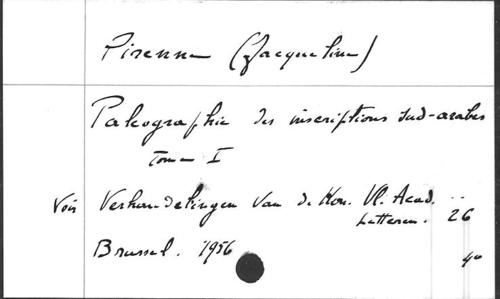 Pirenne (Jacqueline)
Paleographie des inscriptions sud-arabes
Tome I
Voir Verhandelingen van de Kon. Vl. Acad. ..
Letteren. 26
Brussel. 1956
4°